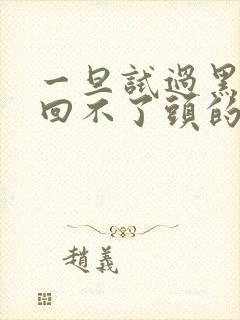 一旦試過黑
回不了頭的
趙義